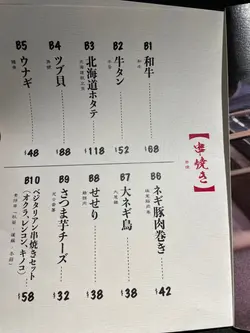 【串焼き】
B1
和牛
$68
B2
牛タン
$52
B3
北海道ホタテ
$118
B4
ツブ貝
$88
B5
ウナギ
$48
B6
ネギ豚肉巻き
$42
B7
大ネギ鳥
$38
B8
せせり
$38
B9
さつま芋チーズ
$32
B10
ベジタリアン串焼きセット
(オクラ、レンコン、キノコ)
$58